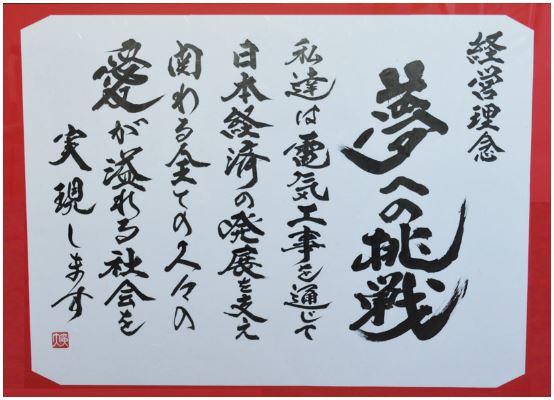 経営理念
夢への挑戦
私達は電気工事を通じて
日本経済の発展を支え
関わる全ての人々の
愛が溢れる社会を
実現します